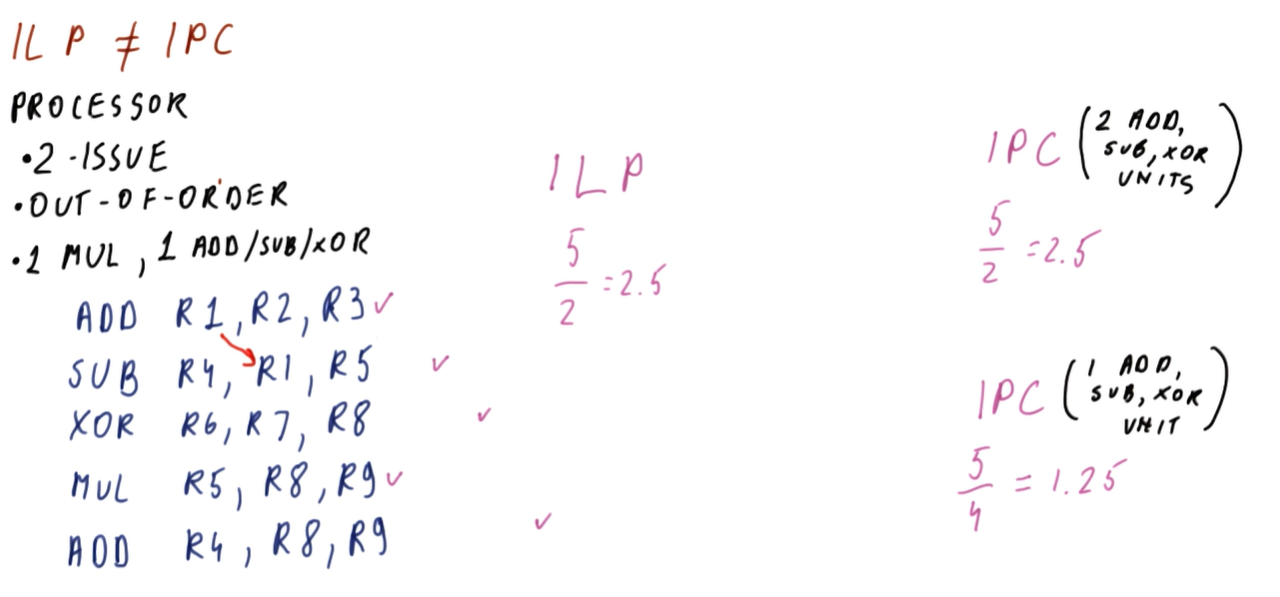 ILP ≠ IPC
PROCESSOR
• 2 -ISSUE
• OUT-OF-ORDER
• 1 MUL, 1 ADD/SUB/XOR
ADD R1, R2, R3 ✓
SUB R4, R1, R5 ✓
XOR R6, R7, R8 ✓
MUL R5, R8, R9 ✓
ADD R4, R8, R9 ✓
ILP
5
2
=2.5
IPC (2 ADD,
SUB, XOR
UNITS)
5
2
=2.5
IPC (1 ADD,
SUB, XOR
UNIT)
5
4
= 1.25